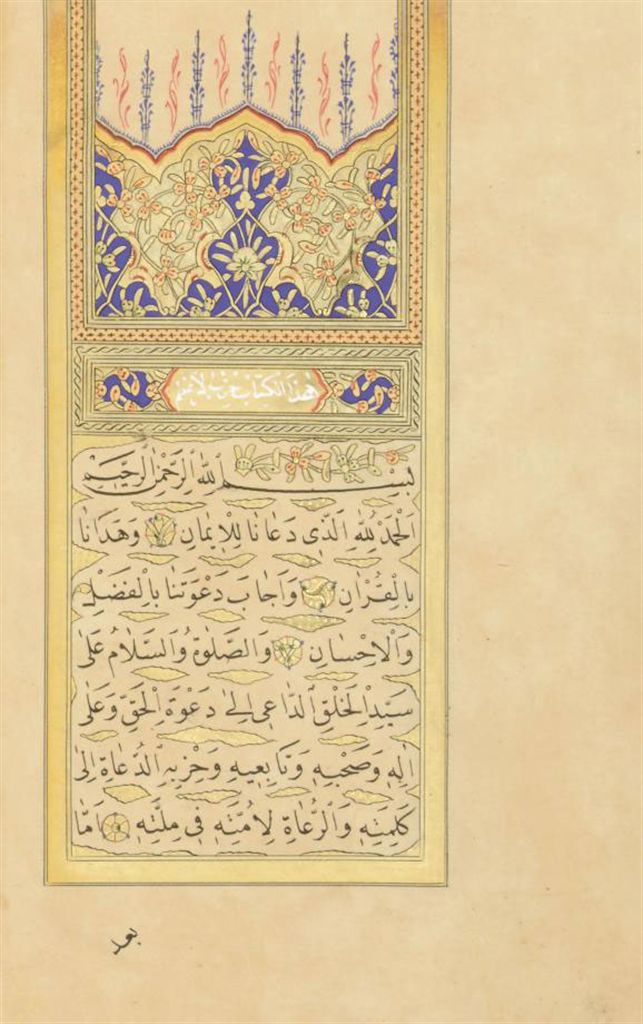 هذا الكتاب حزب الاعظم
بسم الله الرحمن الرحيم
اَلْحَمْدُ لِلّٰهِ الَّذِى دَعَانَا لِلْاِيمَانِ وَهَدَانَا
بِالْقُرْاٰنِ وَاَجَابَ دَعْوَتَنَا بِالْفَضْلِ
وَالْاِحْسَانِ وَالصَّلٰوةُ وَالسَّلَامُ عَلٰى
سَيِّدِ الْخَلْقِ الدَّاعِى اِلٰى دَعْوَةِ الْحَقِّ وَعَلٰى
اٰلِهٖ وَصَحْبِهٖ وَتَابِعِيهٖ وَحِزْبِهِ الدُّعَاةِ اِلٰى
كَلِمَتِهٖ وَالرُّعَاةِ لِاُمَّتِهٖ فِى مِلَّتِهٖ اَمَّا
بعد